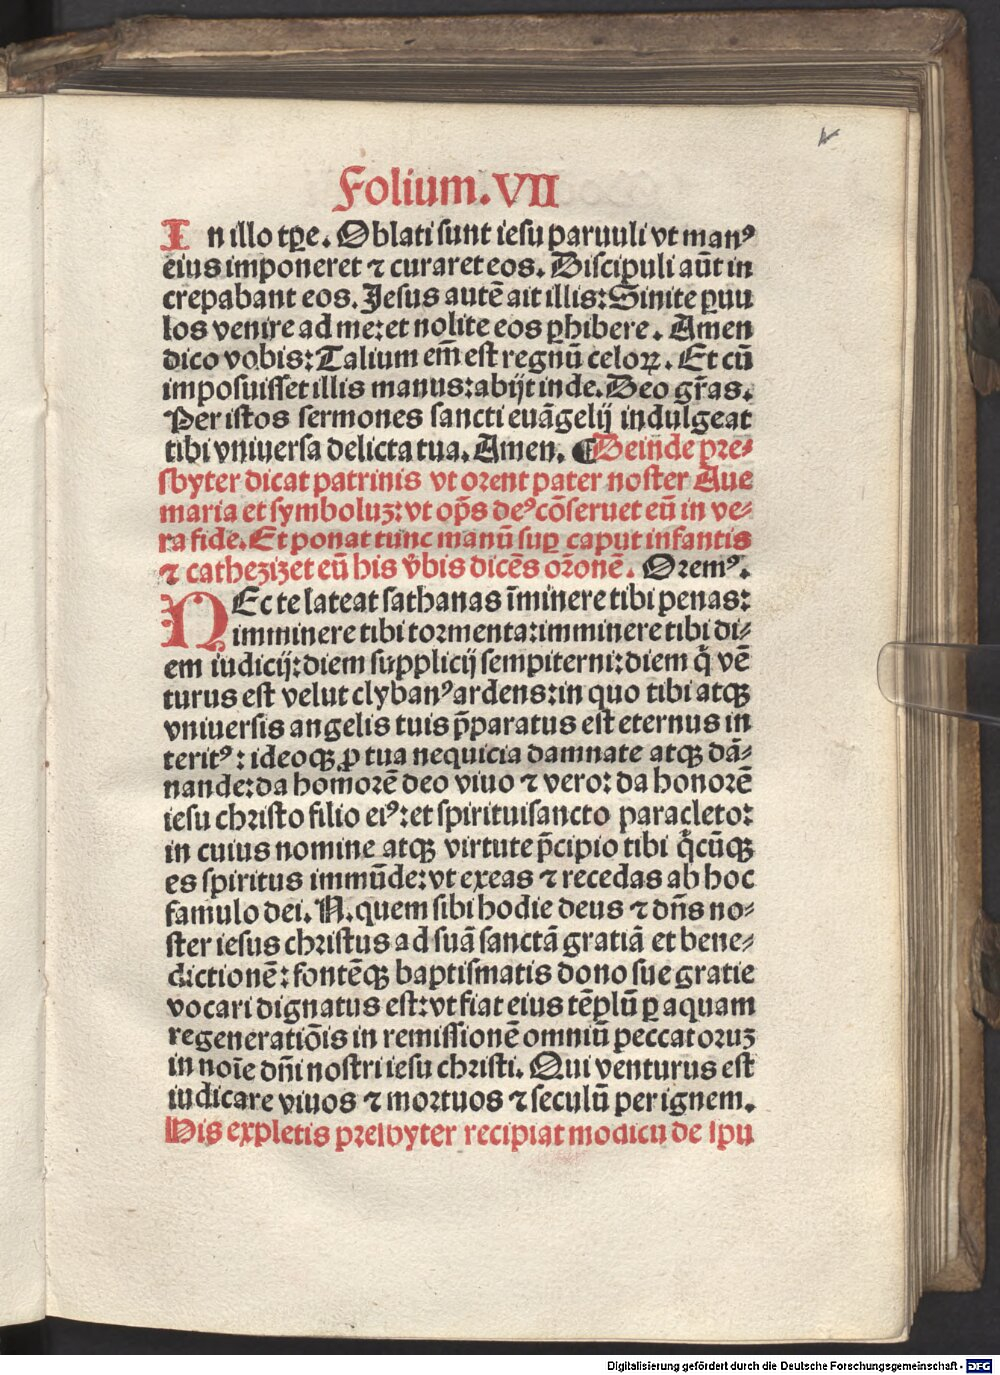 Folium. VII
In illo tꝑe. Oblati sunt iesu paruuli vt manꝰ
eius imponeret ⁊ curaret eos. Discipuli aūt in
crepabant eos. Jesus autē ait illis: Sinite ꝑuu
los venire ad me: et nolite eos ꝓhibere. Amen
dico vobis: Talium em̄ est regnū celoꝝ. Et cū
imposuisset illis manus: abijt inde. Deo gr̄as.
Per istos sermones sancti euāgelij indulgeat
tibi vniuersa delicta tua. Amen. ¶ Deinde pre⸗
sbyter dicat patrinis vt orent pater noster Aue
maria et symboluꝫ: vt op̄s deꝰ cōseruet eū in ve⸗
ra fide. Et ponat tunc manū suꝑ caput infantis
⁊ cathezizet eū his v̄bis dicēs or̄onē. Oremꝰ.
NEc te lateat sathanas īminere tibi penas:
imminere tibi tormenta: imminere tibi di⸗
em iudicij: diem supplicij sempiterni: diem q̇ vē
turus est velut clybanꝰ ardens: in quo tibi atqꝫ
vniuersis angelis tuis p̄paratus est eternus in
teritꝰ: ideoqꝫ ꝓ tua nequicia damnate atqꝫ dā⸗
nande: da homorē deo viuo ⁊ vero: da honorē
iesu christo filio eiꝰ: et spirituisancto paracleto:
in cuius nomine atqꝫ virtute p̄cipio tibi q̇cūqꝫ
es spiritus immūde: vt exeas ⁊ recedas ab hoc
famulo dei. N. quem sibi hodie deus ⁊ dn̄s no⸗
ster iesus christus ad suā sanctā gratiā et bene⸗
dictionē: fontēqꝫ baptismatis dono sue gratie
vocari dignatus est: vt fiat eius tēplū ꝑ aquam
regeneratiōis in remissionē omniū peccatoruꝫ
in noīe dn̄i nostri iesu christi. Qui venturus est
iudicare viuos ⁊ mortuos ⁊ seculū per ignem.
His expletis presbyter recipiat modicū de spu
Digitalisierung gefördert durch die Deutsche Forschungsgemeinschaft - DFG